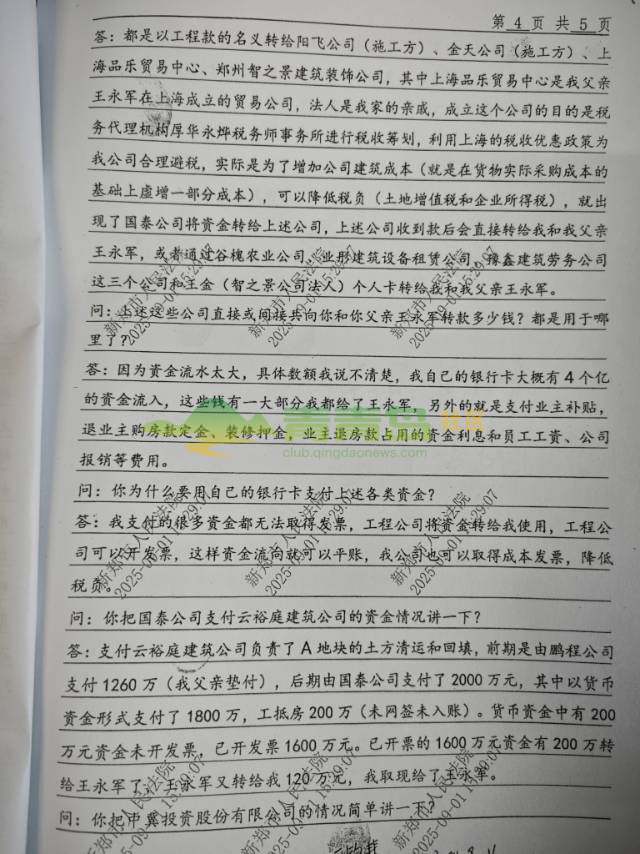 第 4 页 共 5 页
答：都是以工程款的名义转给阳飞公司（施工方）、金天公司（施工方）、上
海品乐贸易中心、郑州智之景建筑装饰公司，其中上海品乐贸易中心是我父亲
王永军在上海成立的贸易公司，法人是我家的亲戚，成立这个公司的目的是税
务代理机构厚华永烨税务师事务所进行税收筹划，利用上海的税收优惠政策为
我公司合理避税，实际是为了增加公司建筑成本（就是在货物实际采购成本的
基础上虚增一部分成本），可以降低税负（土地增值税和企业所得税），就出
现了国泰公司将资金转给上述公司，上述公司收到款后会直接转给我和我父亲
王永军，或者通过谷槐农业公司、业彤建筑设备租赁公司、豫鑫建筑劳务公司
这三个公司和王金（智之景公司法人）个人卡转给我和我父亲王永军。
问：上述这些公司直接或间接共向你和你父亲王永军转款多少钱？都是用于哪
里了？
答：因为资金流水太大，具体数额我说不清楚，我自己的银行卡大概有 4 个亿
的资金流入，这些钱有一大部分我都给了王永军，另外的就是支付业主补贴，
退业主购房款定金、装修押金，业主退房款占用的资金利息和员工工资、公司
报销等费用。
问：你为什么要用自己的银行卡支付上述各类资金？
答：我支付的很多资金都无法取得发票，工程公司将资金转给我使用，工程公
司可以开发票，这样资金流向就可以平账，我公司也可以取得成本发票，降低
税负。
问：你把国泰公司支付云裕庭建筑公司的资金情况讲一下？
答：支付云裕庭建筑公司负责了 A 地块的土方清运和回填，前期是由鹏程公司
支付 1260 万（我父亲垫付），后期由国泰公司支付了 2000 万元，其中以货币
资金形式支付了 1800 万，工抵房 200 万（未网签未入账）。货币资金中有 200
万元资金未开发票，已开发票 1600 万元。已开票的 1600 万元资金有 200 万转
给王永军了，王永军又转给我 120 万元，我取现给了王永军。
问：你把中冀投资股份有限公司的情况简单讲一下？
新郑市人民法院
2025-09-01 15:29:07
青青岛社区
club.qingdaonews.com